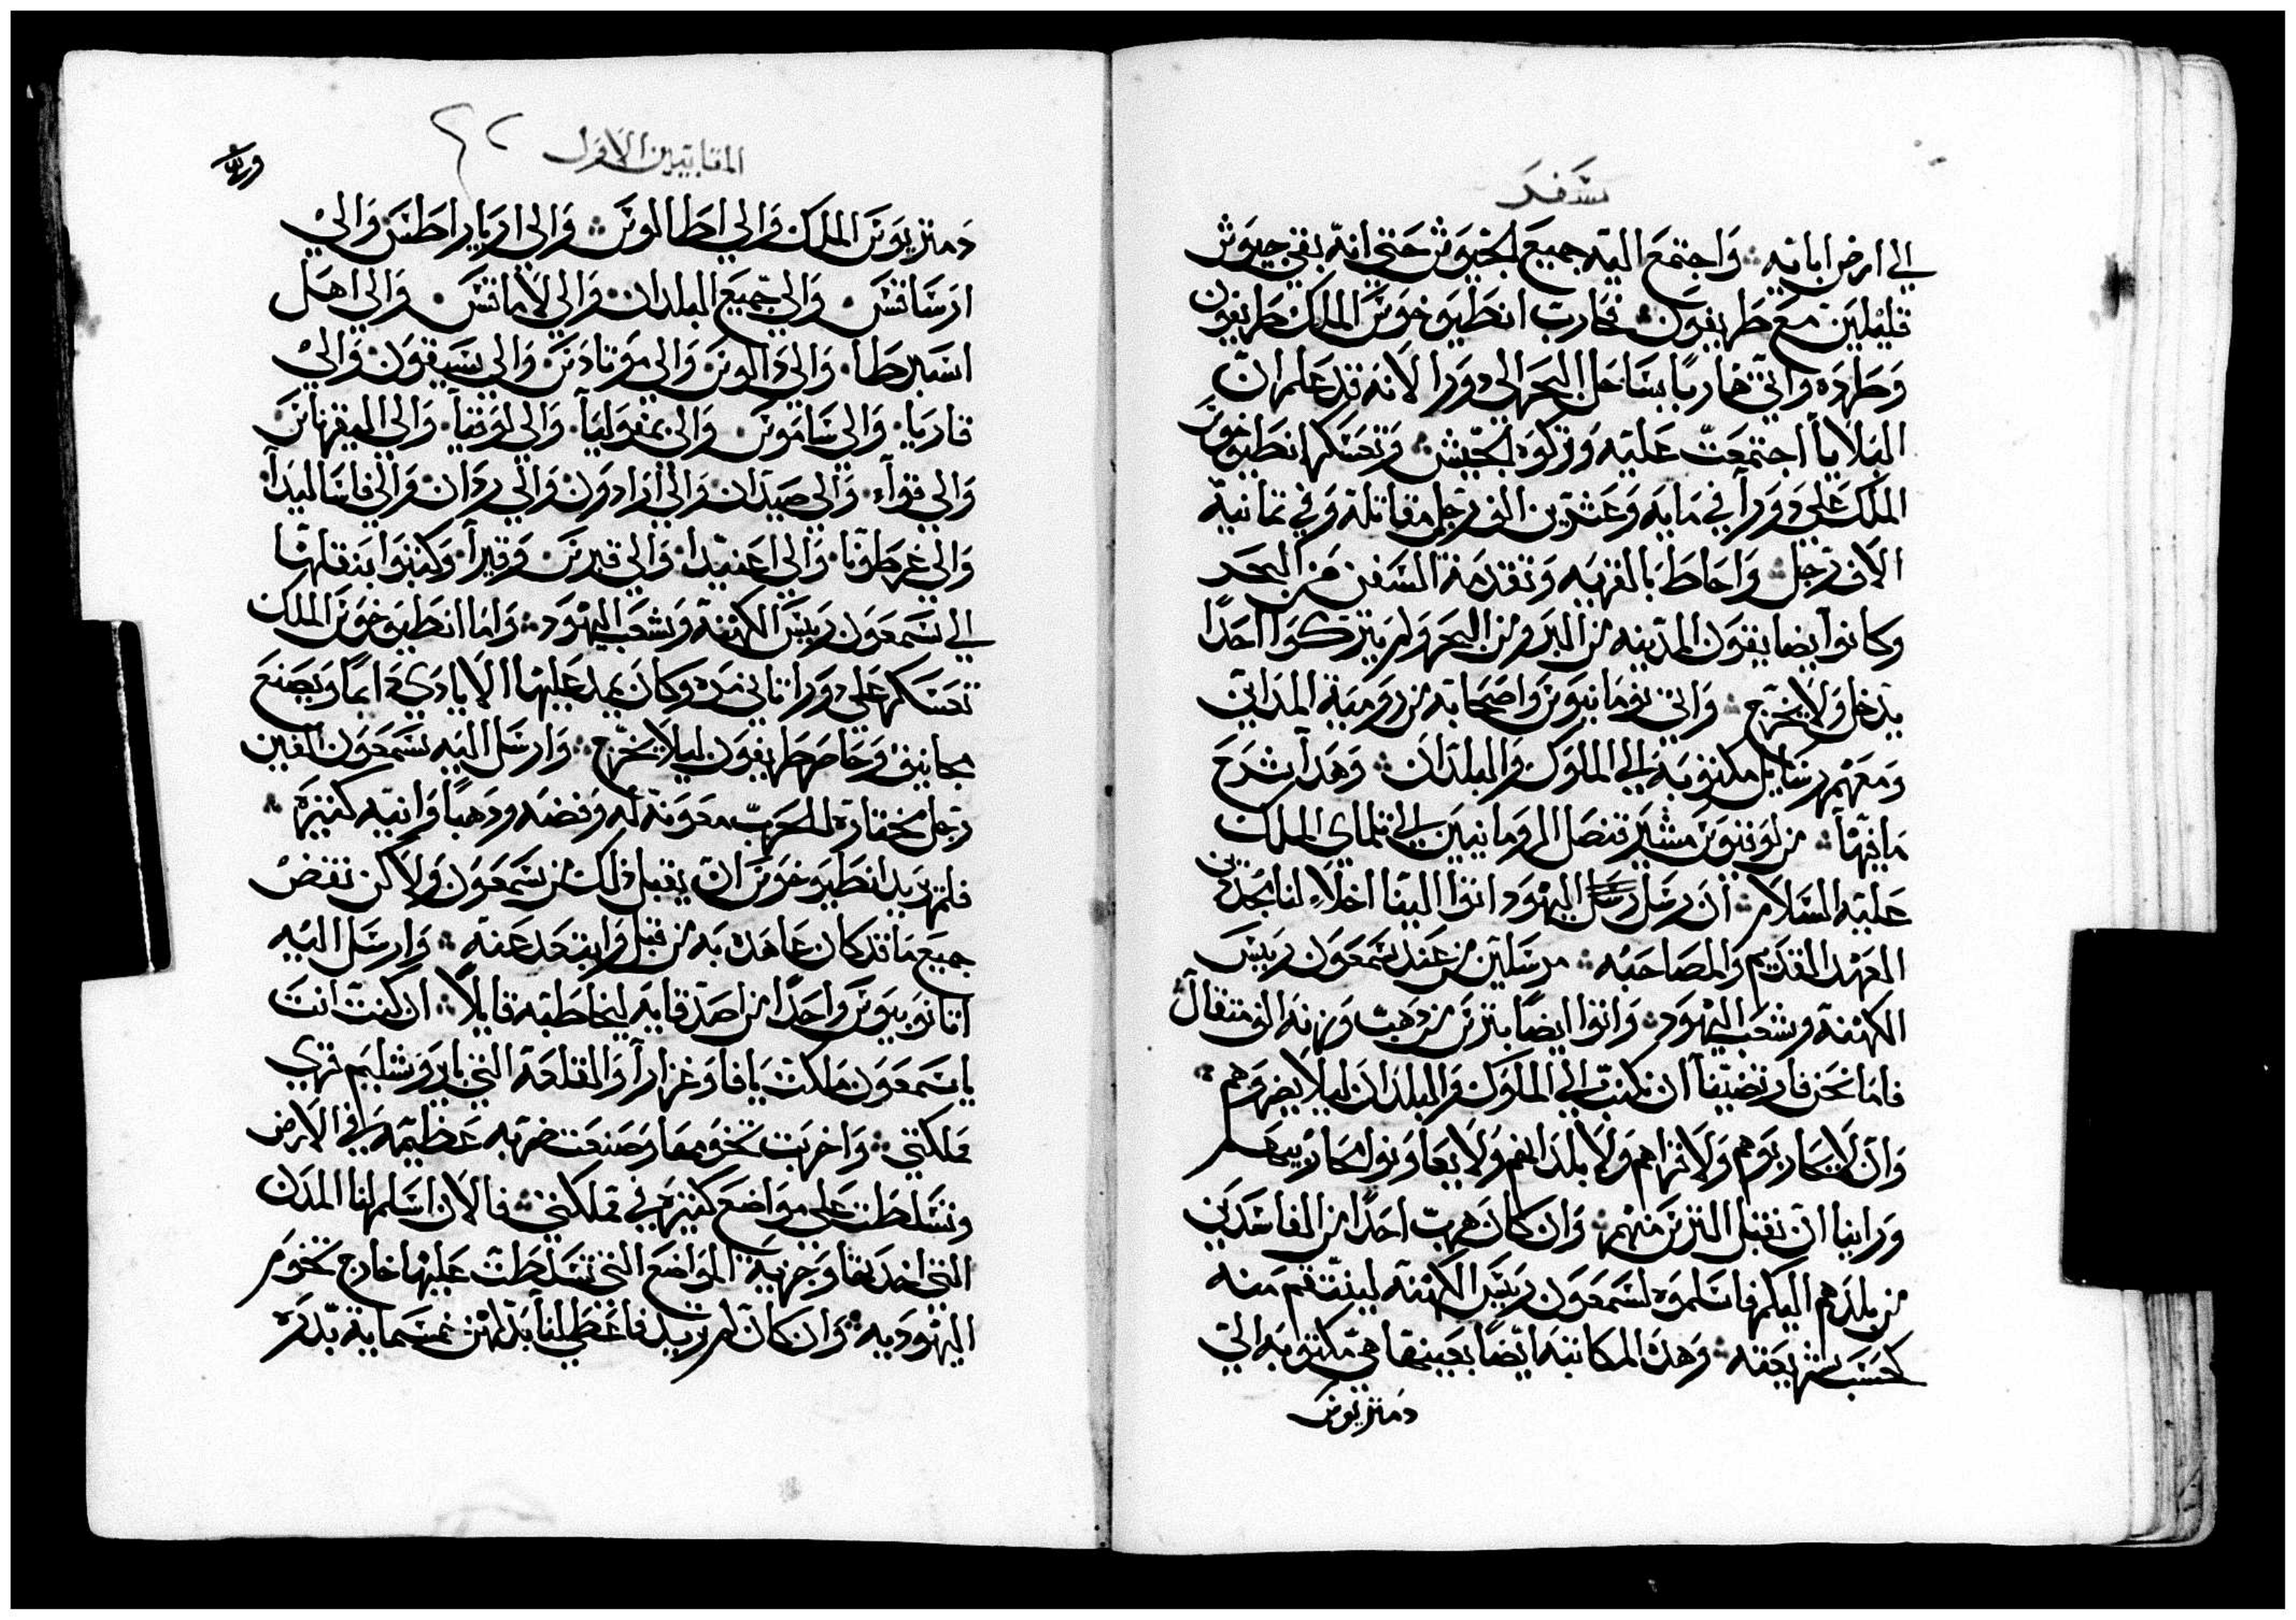 سفر
الي ارض ابايه واجتمع اليه جميع الجيوش حتي انه بقي جيوش
قليلين مع طريفون فحارب انطيوخوس الملك طريفون
وطرده واتي هاربا بساحل البحر الي دورا لانه قد علم ان
البلايا اجتمعت عليه وتركوه الجيش وتعسكر انطيوخوس
الملك علي دورا في مايه وعشرين الف رجل مقاتلة وفي تمانية
الاف رجل واحاط بالقريه وتقدمة السفن من البحر
وكانوا يضايقون المدينه من البر ومن البحر ولم يتركوا احدا
يدخل ولا يخرج واتي نومانيوس واصحابه من رومية المداين
ومعهم رسايل مكتوبه الي الملوك والبلدان وهدا شرح
ما فيها من لوقيوس مشير قنصل الرومانيين الي تلماي الملك
عليه السلام ان رسل اليهود اتوا الينا اخلاء لنا مجددين
العهد القديم والمصاحبه مرسلين من عند سمعون رييس
الكهنة وشعب اليهود واتوا ايضا بترس من دهب وزنه الف متقال
فاما نحن فارتضينا ان نكتب الي الملوك والبلدان ليلا يضروهم
وان لا يحاربوهم ولا قراهم ولا بلدانهم ولا يعاونوا محاربيهم
وراينا ان نقبل الترس منهم وان كان هرب احدا من المفاسدين
من بلدهم اليكم فاسلموه لسمعون رييس الكهنة لينتقم منه
كحسب شريعته وهده المكاتبه ايضا بعينها هي مكتوبه الي
دمتريوس
المقابيين الاول ٤٢
دمتريوس الملك والي اطالوس والي ارياراطس والي
ارساقس والي جميع البلدان والي لامانقس والي اهل
اسبرطا والي دالوس والي موتادس والي سيقون والي
قاريا والي ساموس والي بمفوليا والي لوقيا والي اليقرناس
والي قوآء والي صيدان والي ارادون والي ردان والي فاساليدا
والي غرطونا والي اعنيدا والي قبرس وقيرآ وكتبوا بنقلها
الي سمعون رييس الكهنة وشعب اليهود واما انطيوخوس الملك
تعسكر علي دورا تاني مره وكان يمد عليها الايادي دايما ويصنع
مجانيق وحاصر طريفون ليلا يخرج وارسل اليه سمعون الفين
رجل مختارة للحرب معونة له وفضه ودهبا وانيه كتيره
فلم يريد انطيوخوس ان يقبل دلك من سمعون ولاكن نقض
جميع ما قد كان عاهده به من قبل وابتعد عنه وارسل اليه
اتانوبيوس واحدا من اصدقايه ليخاطبه قايلا ان كنت انت
يا سمعون ملكت يافا وغزارا والقلعة التي باروشليم قري
مملكتي واخربت تخومها وصنعت ضربه عظيمه في الارض
وتسلطت علي مواضع كتيره في مملكتي فالان اسلم لنا المدن
التي اخدتها وجزية المواضع التي تسلطت عليها خارج تخوم
اليهوديه وان كان لم تريد فاعطي لنا بدلهن خمسماية بدره